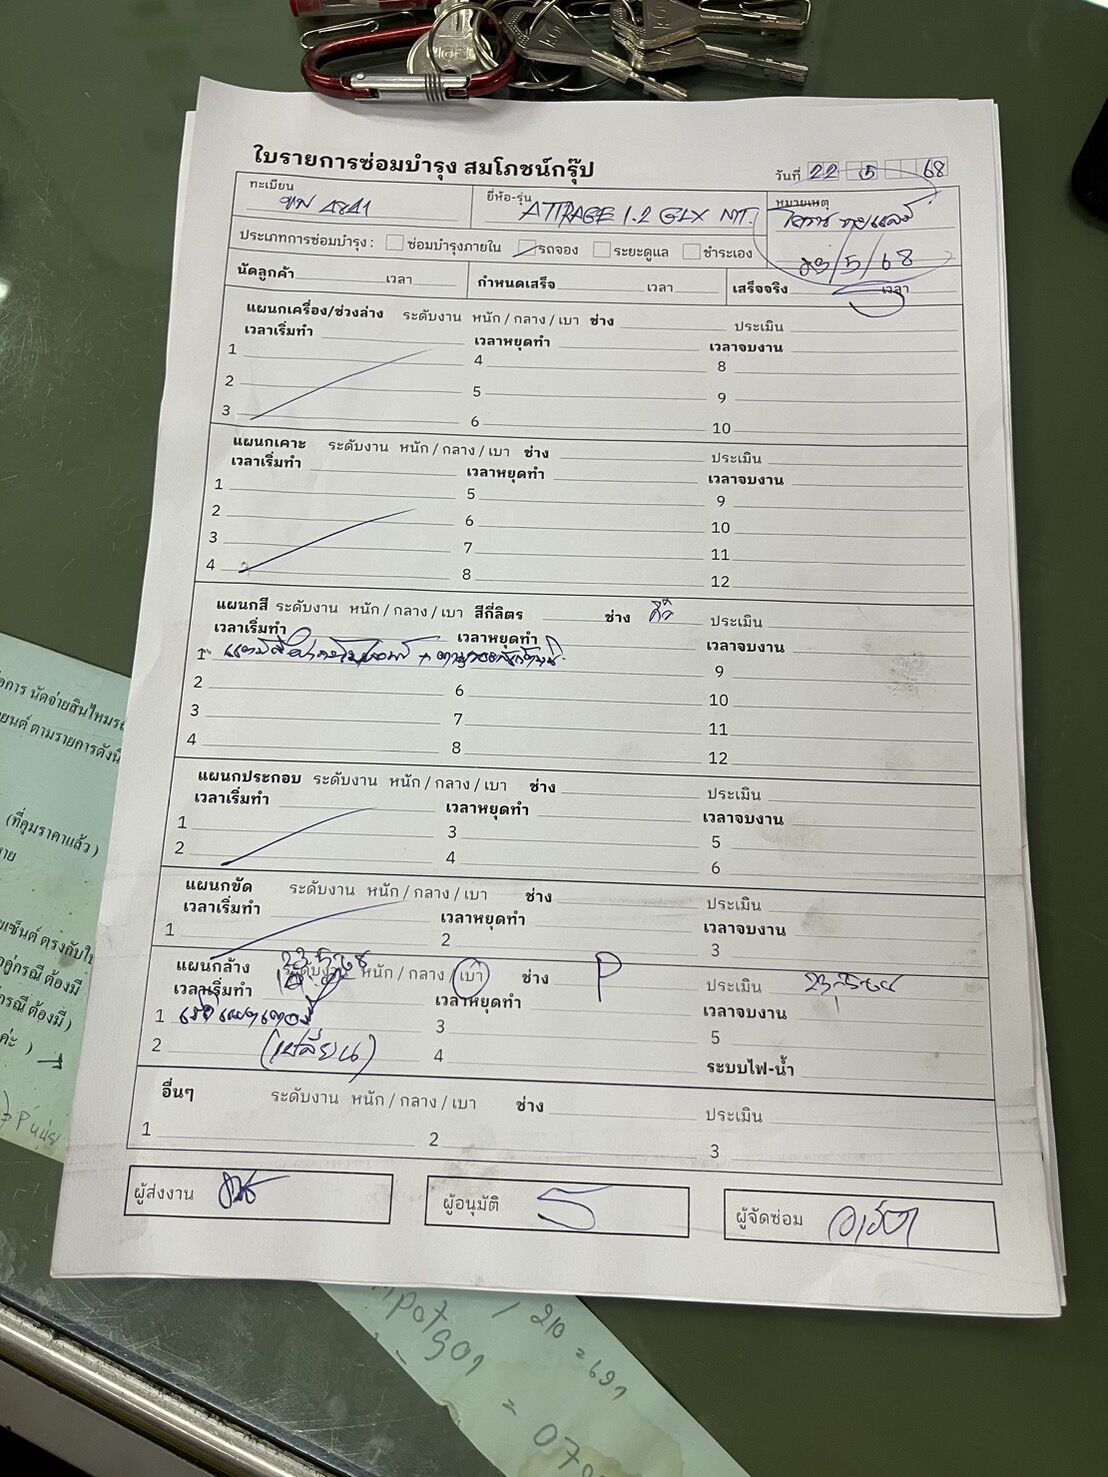 ใบรายการซ่อมบำรุง สมโภชน์กรุ๊ป
วันที่ 22 5 68
ทะเบียน 4841
ยี่ห้อ-รุ่น ATTRAGE 1.2 GLX MT.
หมายเหตุ
23/5/68
ประเภทการซ่อมบำรุง : ซ่อมบำรุงภายใน รถจอง ระยะดูแล ชำระเอง
นัดลูกค้า เวลา กำหนดเสร็จ เวลา เสร็จจริง เวลา
แผนกเครื่อง/ช่วงล่าง ระดับงาน หนัก / กลาง / เบา ช่าง ประเมิน
เวลาเริ่มทำ เวลาหยุดทำ เวลาจบงาน
1 4 8
2 5 9
3 6 10
แผนกเคาะ ระดับงาน หนัก / กลาง / เบา ช่าง ประเมิน
เวลาเริ่มทำ เวลาหยุดทำ เวลาจบงาน
1 5 9
2 6 10
3 7 11
4 8 12
แผนกสี ระดับงาน หนัก / กลาง / เบา สีกี่ลิตร ช่าง ประเมิน
เวลาเริ่มทำ เวลาหยุดทำ เวลาจบงาน
1 9
2 6 10
3 7 11
4 8 12
แผนกประกอบ ระดับงาน หนัก / กลาง / เบา ช่าง ประเมิน
เวลาเริ่มทำ เวลาหยุดทำ เวลาจบงาน
1 3 5
2 4 6
แผนกขัด ระดับงาน หนัก / กลาง / เบา ช่าง ประเมิน
เวลาเริ่มทำ เวลาหยุดทำ เวลาจบงาน
1 2 3
แผนกล้าง ระดับงาน หนัก / กลาง / เบา ช่าง P ประเมิน 23-5-68
23-5-68
เวลาเริ่มทำ เวลาหยุดทำ เวลาจบงาน
1 3 5
2 (เปลี่ยน) 4 ระบบไฟ-น้ำ
อื่นๆ ระดับงาน หนัก / กลาง / เบา ช่าง ประเมิน
1 2 3
ผู้ส่งงาน ผู้อนุมัติ ผู้จัดซ่อม
นัดจ่ายสินไหม
ตามรายการดังนี้
(ที่คุมราคาแล้ว)
ต้องมี
ต้องมี)
ค่ะ )
/ 210 = 691
901 = 070